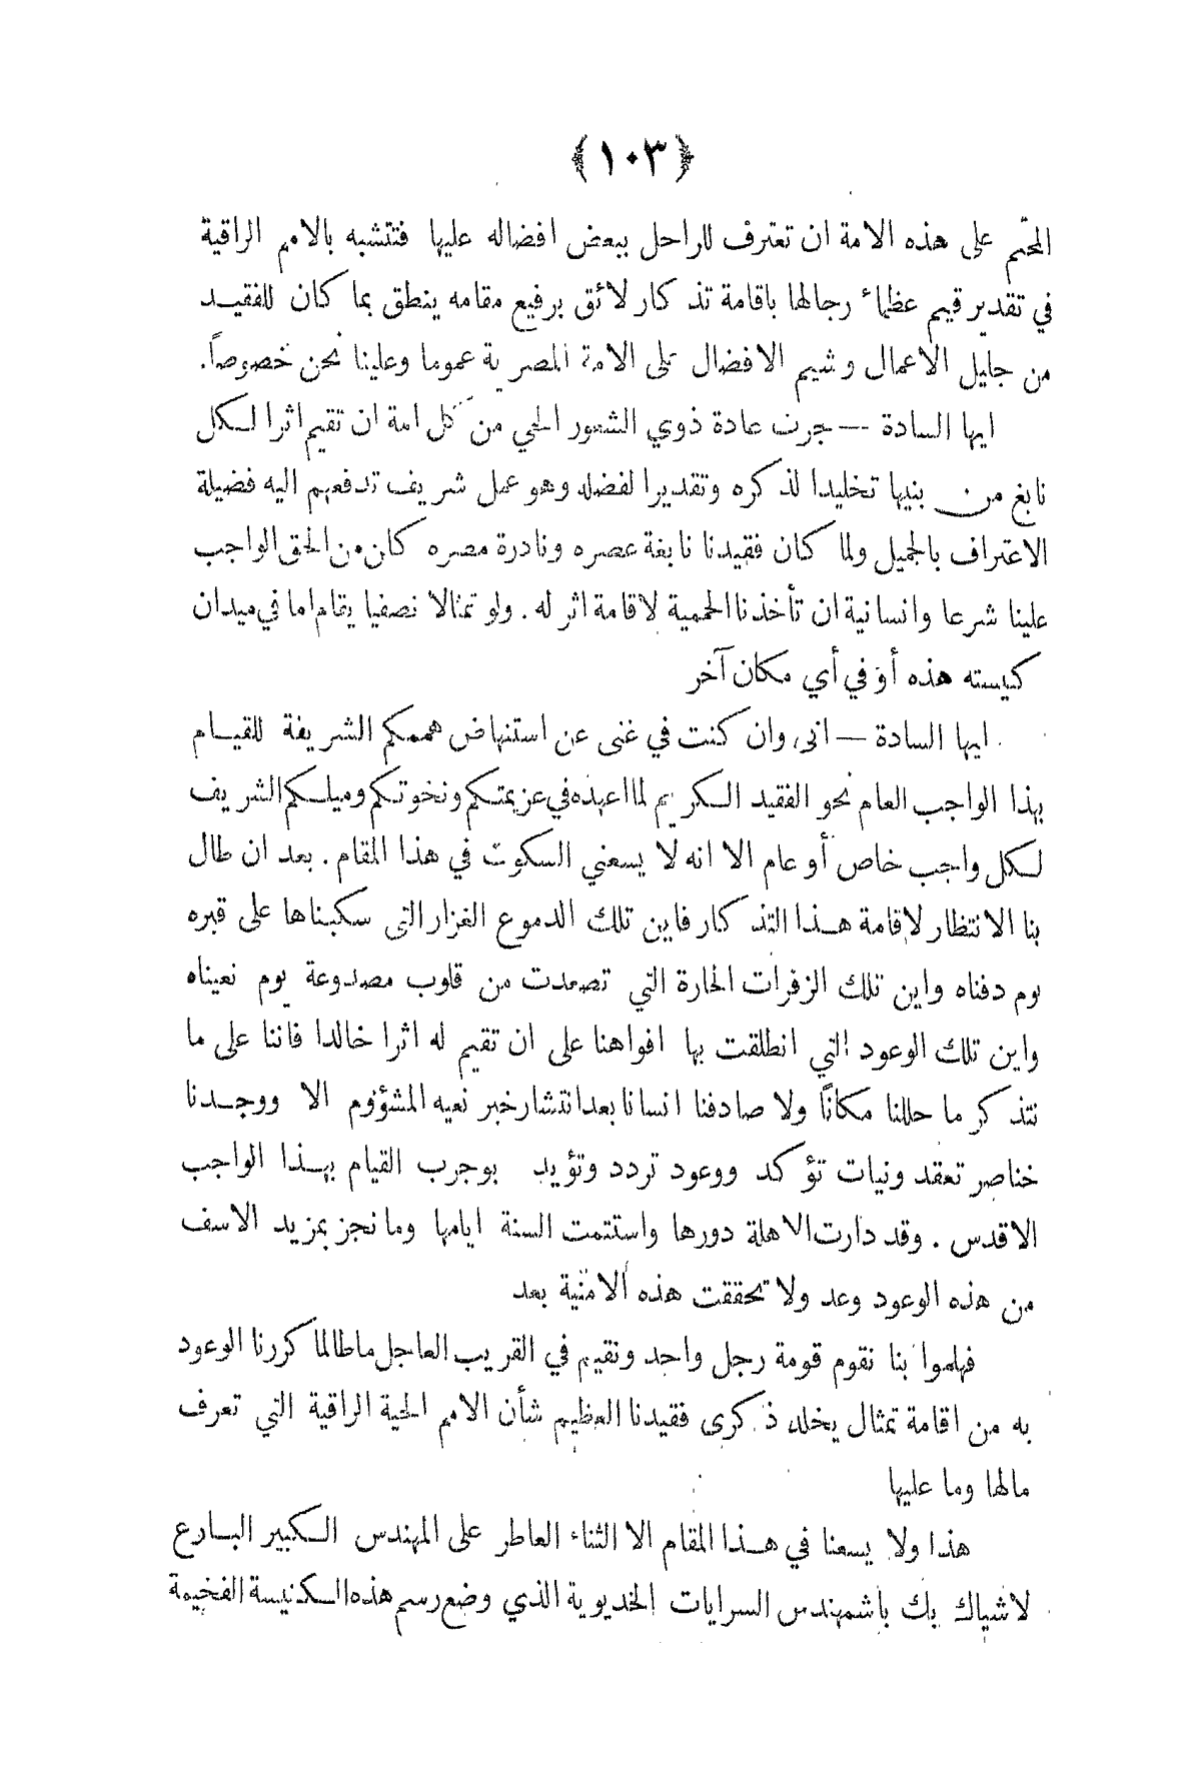 ﴿١٠٣﴾
المحتّم على هذه الامة ان تعترف للراحل ببعض افضاله عليها فتتشبه بالامم الراقية
في تقدير قيم عظماء رجالها باقامة تذكار لائق برفيع مقامه ينطق بما كان للفقيد
من جليل الاعمال وشيم الافضال على الامة المصرية عموما وعلينا نحن خصوصاً.
ايها السادة — جرت عادة ذوي الشعور الحي من كل امة ان تقيم اثرا لكل
نابغ من بنيها تخليدا لذكره وتقديرا لفضله وهو عمل شريف تدفعهم اليه فضيلة
الاعتراف بالجميل ولما كان فقيدنا نابغة عصره ونادرة مصره كان من الحق الواجب
علينا شرعا وانسانية ان تأخذنا الحمية لاقامة اثر له. ولو تمثالا نصفيا يقام اما في ميدان
كنيسته هذه أو في أي مكان آخر
ايها السادة — انى وان كنت في غنى عن استنهاض هممكم الشريفة للقيام
بهذا الواجب العام نحو الفقيد الكريم لما اعهده في عزيمتكم ونخوتكم وميلكم الشريف
لكل واجب خاص أو عام الا انه لا يسعني السكوت في هذا المقام. بعد ان طال
بنا الانتظار لاقامة هذا التذكار فاين تلك الدموع الغزار التى سكبناها على قبره
يوم دفناه واين تلك الزفرات الحارة التي تصعدت من قلوب مصدوعة يوم نعيناه
واين تلك الوعود التي انطلقت بها افواهنا على ان تقيم له اثرا خالدا فاننا على ما
نتذكر ما حللنا مكاناً ولا صادفنا انسانا بعد انتشار خبر نعيه المشؤوم الا ووجدنا
خناصر تعقد ونيات تؤكد ووعود تردد وتؤيد بوجرب القيام بهذا الواجب
الاقدس. وقد دارت الاهلة دورها واستتمت السنة ايامها وما نجز بمزيد الاسف
من هذه الوعود وعد ولا تحققت هذه الامنية بعد
فهلموا بنا نقوم قومة رجل واحد ونقيم في القريب العاجل ما طالما كررنا الوعود
به من اقامة تمثال يخلد ذكرى فقيدنا العظيم شأن الامم الحية الراقية التي تعرف
مالها وما عليها
هذا ولا يسعنا في هذا المقام الا الثناء العاطر على المهندس الكبير البارع
لاشياك بك باشمهندس السرايات الخديوية الذي وضع رسم هذه الكنيسة الفخيمة